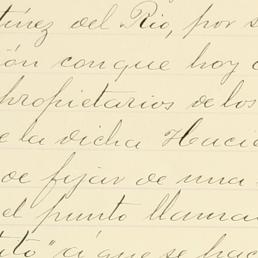 tínez del Rio, por s
ión conque hoy c
propietarios de los
e la dicha Hacie
de fijar de una
el punto llama
ito" á que se hac